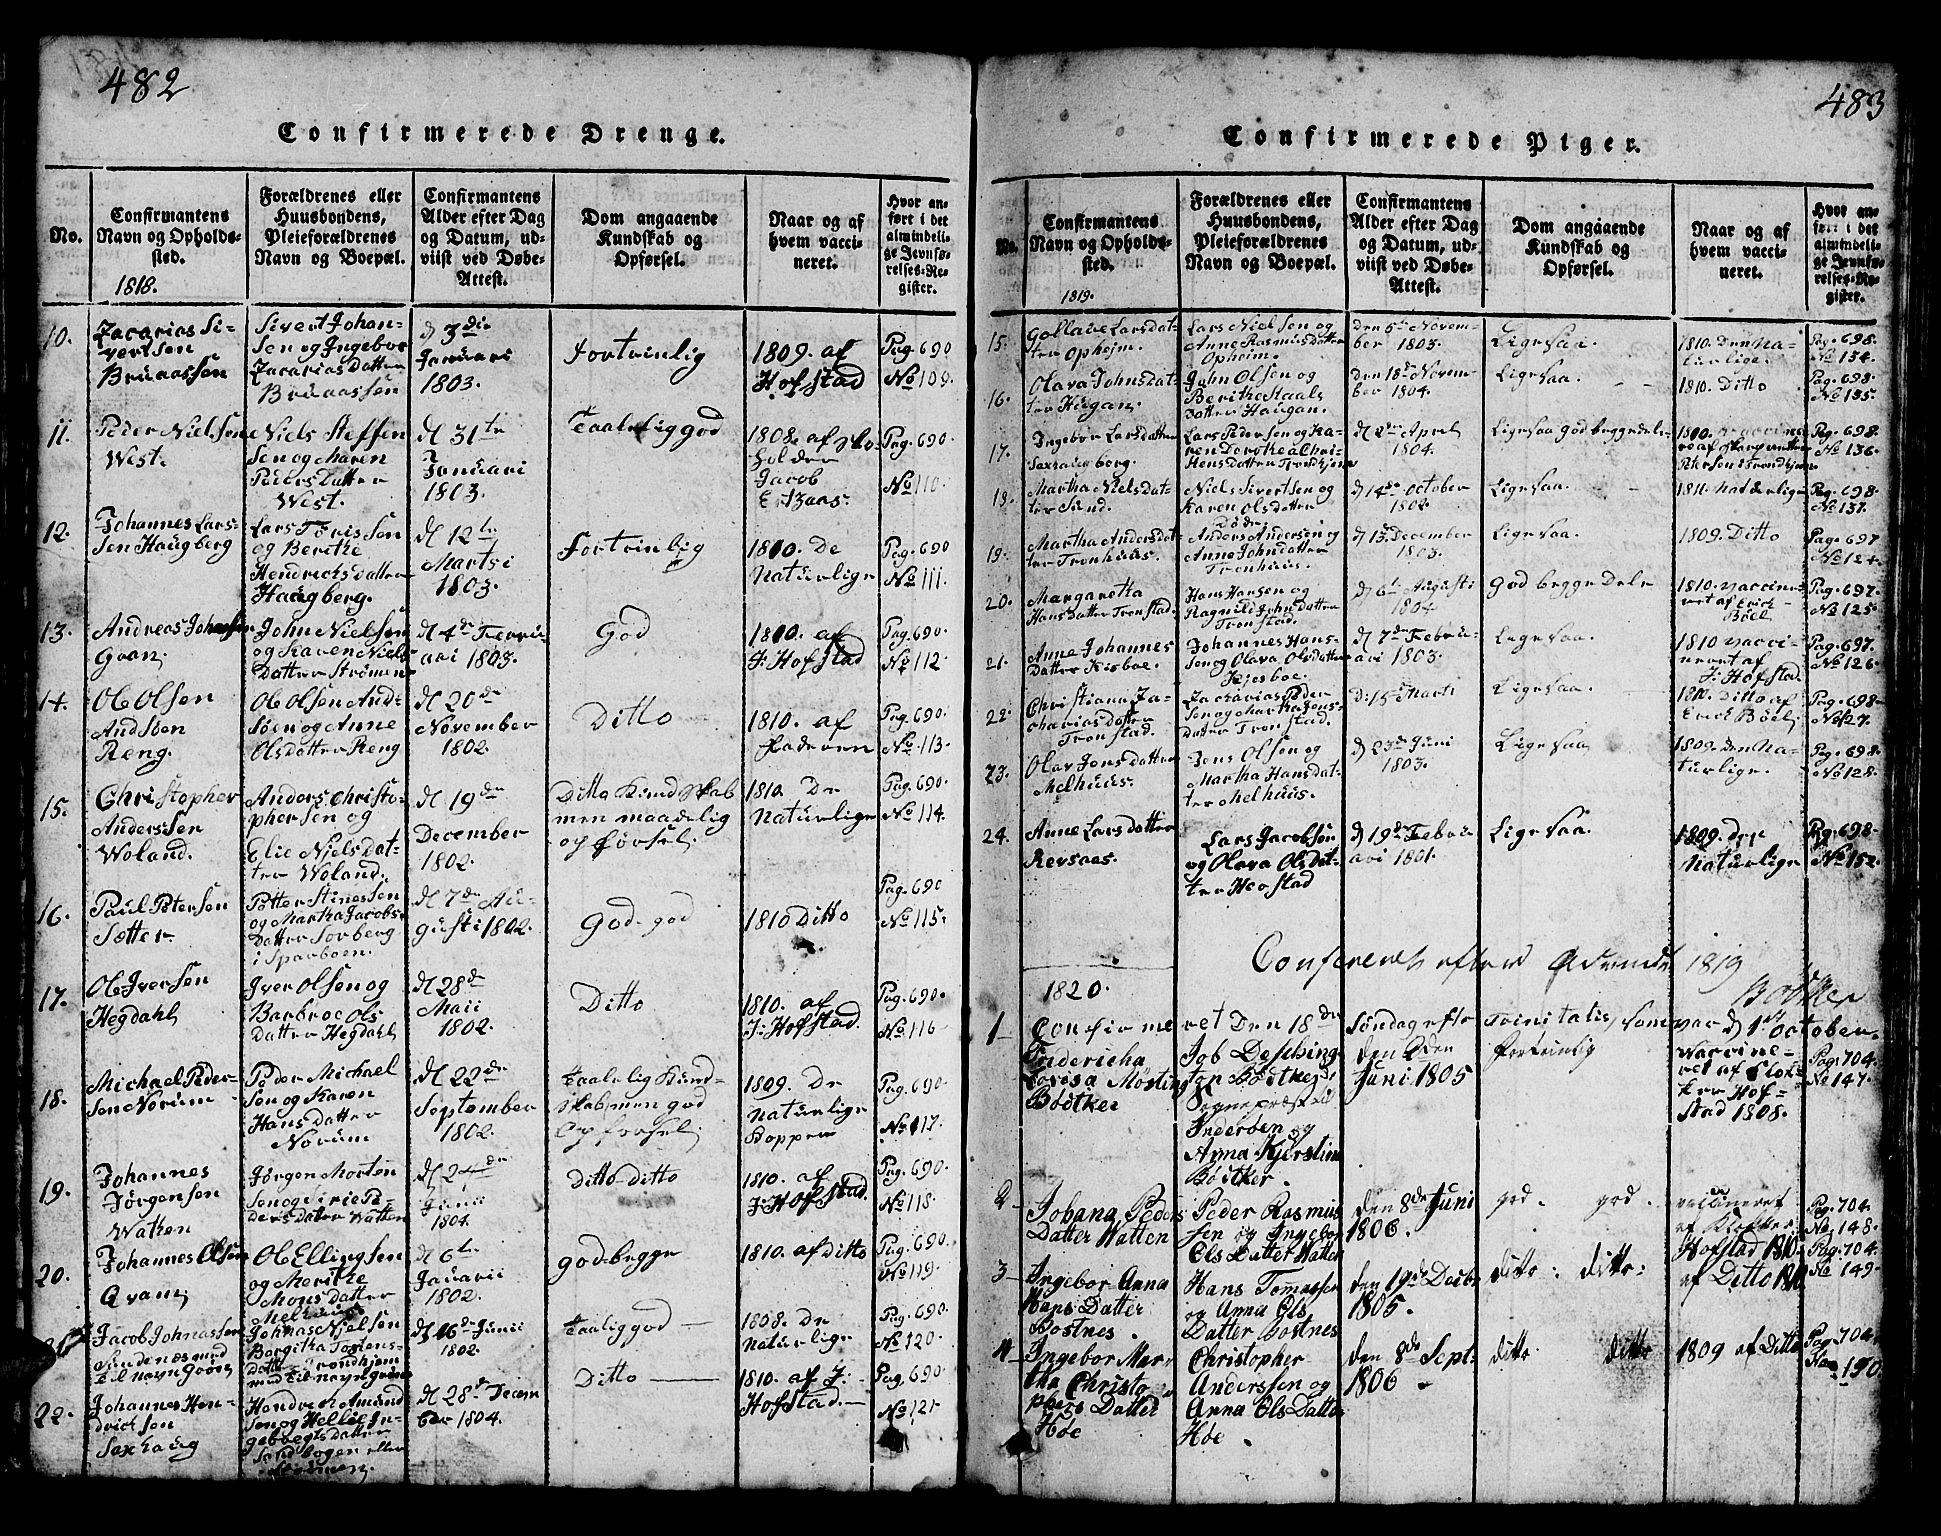 482
Confirmerede Drenge.
No.
Confirmantens
Navn og Opholds-
sted.
1818.
Forældrenes eller
Huusbondens,
Pleieforældrenes
Navn og Boepæl.
Confirmantens
Alder efter Dag
og Datum, ud-
viist ved Døbe-
Attest.
Dom angaaende
Kundskab og
Opførsel.
Naar og af
hvem vacci-
neret.
Hvor an-
ført i det
almindeli-
ge Jevnfø-
relses-Re-
gister.
10.
Zacarias Si-
vertsen
Bruaassen
Sivert Johan-
sen og Ingebor
Zacarias Datter
Bruaassen
d 3die
Januari
1803.
Fortrinlig
1809. af
Hofstad
Pag. 690
No 109.
11.
Peder Nielsen
West.
Niels Steffen
sen og Maren
Peders Datter
West.
dl 31te
Januari
1803.
Taaleliggod
1808. af
Jacob
Pag. 690.
No 110.
12.
Johannes Lars-
sen Haugberg
Lars
og Berithe
Hendricks datter
Haugberg.
dl 12te
Martsi
1803.
Fortrinlig
1810. De
Naturlige
Pag. 690
No 111.
13.
Andreas Johansen
Gran.
John Nielsen
og Karen Niels
Datter Strömen
dl 4de Febru
ari 1803.
God
1810. af
J: Hofstad
Pag. 690.
No 112.
14.
Ole Olsen
Andsøen
Reng.
Ole Olsen And-
søen og Anne
Olsdatter Reng
dl 20de
November
1802.
Ditto
1810. af
Faderen
Pag. 690.
No. 113.
15.
Christopher
Anderssen
Woland.
Anders Christo-
phersen og
Elie Niels dat-
ter Woland.
dl 19de
December
1802.
Ditto Kundskab
men maadelig
opførsel.
1810. De
Naturlige
Pag. 690.
No 114.
16.
Paul Petersen
Sætter.
Petter Stinessen
og Martha Jacobs-
Datter Sorberg
i Sparboen.
dl 7de Au-
gusti 1802.
God-god
1810 Ditto
Pag. 690
No 115.
17.
Ole Iversen
Hegdahl
Iver Olsen og
Barbroe Ols
datter Hegdahl
dl 28de
Maii
1802.
Ditto
1810. af
J: Hofstad.
Pag. 690.
No 116
18.
Michael Peder-
sen Norum
Peder Michael
sen og Karen
Hans datter
Norum
dl 22de
September
1802.
Taalelig Kund-
skab, men god
Opførsel,
1809. De
Naturlige
Kopper
Pag. 690.
No 117.
19.
Johannes
Jörgensen
Watten
Jørgen Morten
sen og Pe-
ders dater Watten
dl 24de
Junii
1804.
ditto-ditto
1810. af
J: Hofstad.
Pag. 690.
No 118.
20.
Johannes Olsen
Qvam
Ole Ellingsen
og Merithe
Mons datter
Melhuus
dl 6te
Januarii
1802.
god-begge
1810. af Ditto
Pag. 690.
No 119.
Jacob Johnassen
Johnas Nielsen
Bergitha
dl 16de Junii
1802.
Taaliggod
1808. De
Naturlige
Pag. 690.
No 120.
22.
Johannes Hen-
drichsen
Saxhaug
Hendrich Amund
sen og Hellie In-
geborgsdatter
Sandbogen eller
Strömen.
dl 28de Decem
ber 1804.
Ditto
1810. af J:
Hofstad.
Pag. 690.
No 121.
483
Confirmerede Piger.
No.
Confirmantens
Navn og Opholds-
sted.
1819.
Forældrenes eller
Huusbondens,
Pleieforældrenes
Navn og Boepæl.
Confirmantens
Alder efter Dag
og Datum, ud-
viist ved Døbe-
Attest.
Dom angaaende
Kundskab og
Opførsel.
Naar og af
hvem vacci-
neret.
Hvor an-
ført i det
almindeli-
ge Jevnfø-
relses-Re-
gister.
15.
Gollave Larsdat-
ter Opheim.
Lars Nielsen og
Anne Rasmus Datter
Opheim.
den 5te Novem-
ber 1803.
Ligesaa.
1810. Den Na-
turlige.
Pag. 698.
No 134.
16.
Olava Johnsdat-
ter Haugan.
John Olsen og
Berithe Staals
datter Haugan.
den 18de Novem-
ber 1804.
Ligesaa.
1810. Ditto
Pag. 698.
No 135.
17.
Ingebor Larsdatter
Saxhaugberg.
Lars Pedersen og Ka-
ren Dorothea Chri-
stensdatter Trondhjem
dl 2den April
1804.
Ligesaa god begge dele
1810. Vaccine-
Petersen i Trondhjem
Pag. 698.
No 136.
18.
Martha Nielsdat-
ter Sund.
Niels Sivertsen og
Karen Olsdatter
d 14de October
1802.
Ligesaa.
1811. Naturlige
Pag. 698.
No 137.
19.
Martha Andersdat-
ter Tronhuus.
Anders Andersen og
Anne John datter
Tronhuus.
d 13 December
1803.
Ligesaa.
1809. Ditto
Pag. 697
No 124.
20.
Margaretta
Hans datter Tronstad.
Hans Hansen og
Ragnild John datter
Tronstad.
d 6te Augusti
1804
God begge Dele
1810. Vaccine-
ret af Erich
Böel
Pag. 697.
No 125.
21.
Anne Johannes
Datter Kisboe.
Johannes Hans-
sen og Olava Olsdatter
Kjesboe.
d 7de Febru-
ari 1803.
Ligesaa.
1810 Vacci-
neret af
J: Hofstad
Pag. 697.
No 126.
22.
Christiana Za-
chariasdotter
Tronstad.
Zacharias Peder
sen og Martha Jens-
datter Tronstad.
d: 15de Marti
Ligesaa.
1810. Ditto af
Erick Böel,
Pag. 698.
No 127.
23.
Olav Jensdatter
Melhuus.
Jens Olsen og
Martha Hansdat-
ter Melhuus.
d 23de Juni
1803.
Ligesaa
1809. Den Na-
turlige.
Pag. 698.
No 128.
24.
Anne Larsdotter
Rersaas.
Lars Jacobsen
og Olava Olsdat-
ter Heostad
d 19de Febru
ari 1801.
Ligesaa.
1809. den
Naturlige
Pag. 698.
No 152.
Confereret efter 1819
Bødtker
1820.
Confirmeret Den 18de Søndag efter Trinitatis, som var d 1ste October.
1
Fredericha
Lovisa Møsting
Bödtker
Job Desching-
ton Bödtker,
Sognepræst til
Inderøen og
Anna Kjerstine
Bödtker.
den 2den
Juni 1805
fortrinlig
Vaccine-
ret af Klok-
ker Hof-
stad 1808.
Pag: 704.
No 147.
2
Johana Peders
Datter Watten
Peder Rasmus
sen og Ingebor
Els Datter Watten
den 8de Juni
1806.
god. god.
vaccineret
af Klokker
Hofstad 1810
Pag. 704.
No. 148.
3
Ingebor Anna
Hans Datter
Bostnes.
Hans Tomassen
og Anna Els
Datter Bostnes
den 19de Decbr
1805.
ditto: ditto:
af Ditto 1810
Pag. 704.
No 149.
4
Ingebor Mar-
tha Christo-
phers Datter
Høe
Christopher
Anderssen og
Anna Els Datter
Høe.
den 8de Sept
1806
ditto ditto
1809 af Ditto
Pag. 704.
No 150.